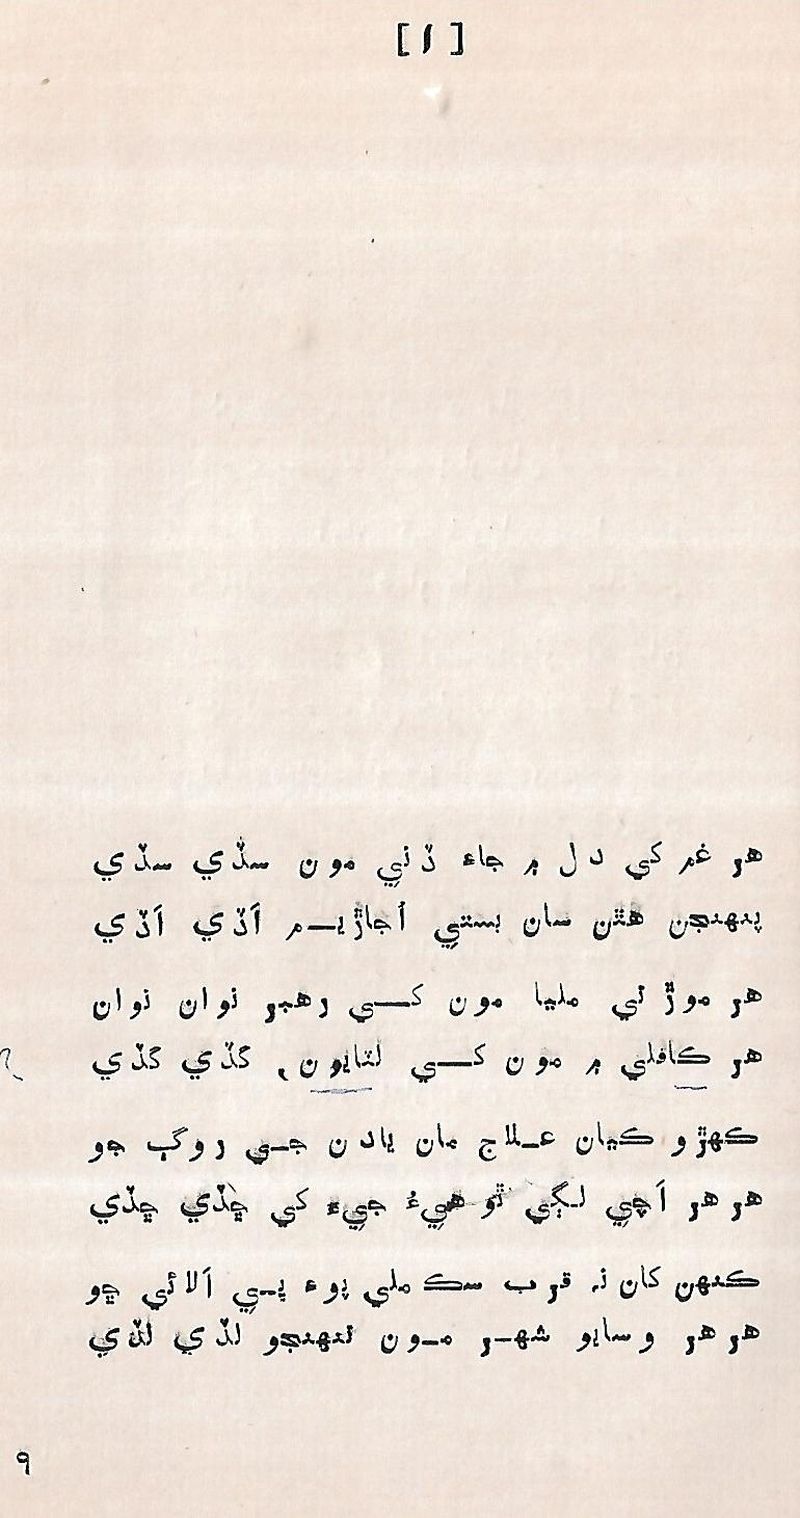 [ ۱ ]
هر غم کي دل ۾ جاءِ ڏني مون سڏي سڏي
پنهنجن هٿن سان بستي اُجاڙيم اَڏي اَڏي
هر موڙ تي مليا مون کي رهبر نوان نوان
هر ڪافلي ۾ مون کي لٽايون، گڏي گڏي
ڪهڙو ڪيان علاج مان يادن جي روڳ جو
هر هر اَچي لڳي ٿو هيءُ جيءَ کي ڇڏي ڇڏي
ڪنهن کان نہ قرب سڪ ملي پوءِ پي اَلائي ڇو
هر هر وسايو شهر مون تنهنجو لڏي لڏي
۹